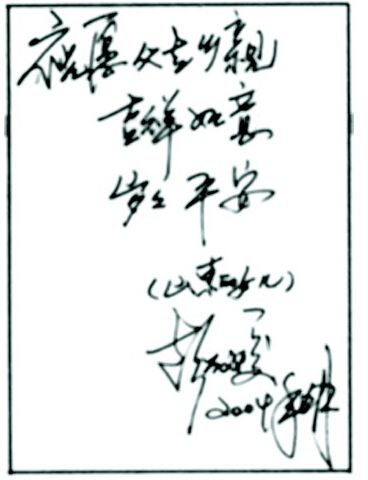 祝愿父老乡亲
吉祥如意
岁岁平安
(山东
2004年